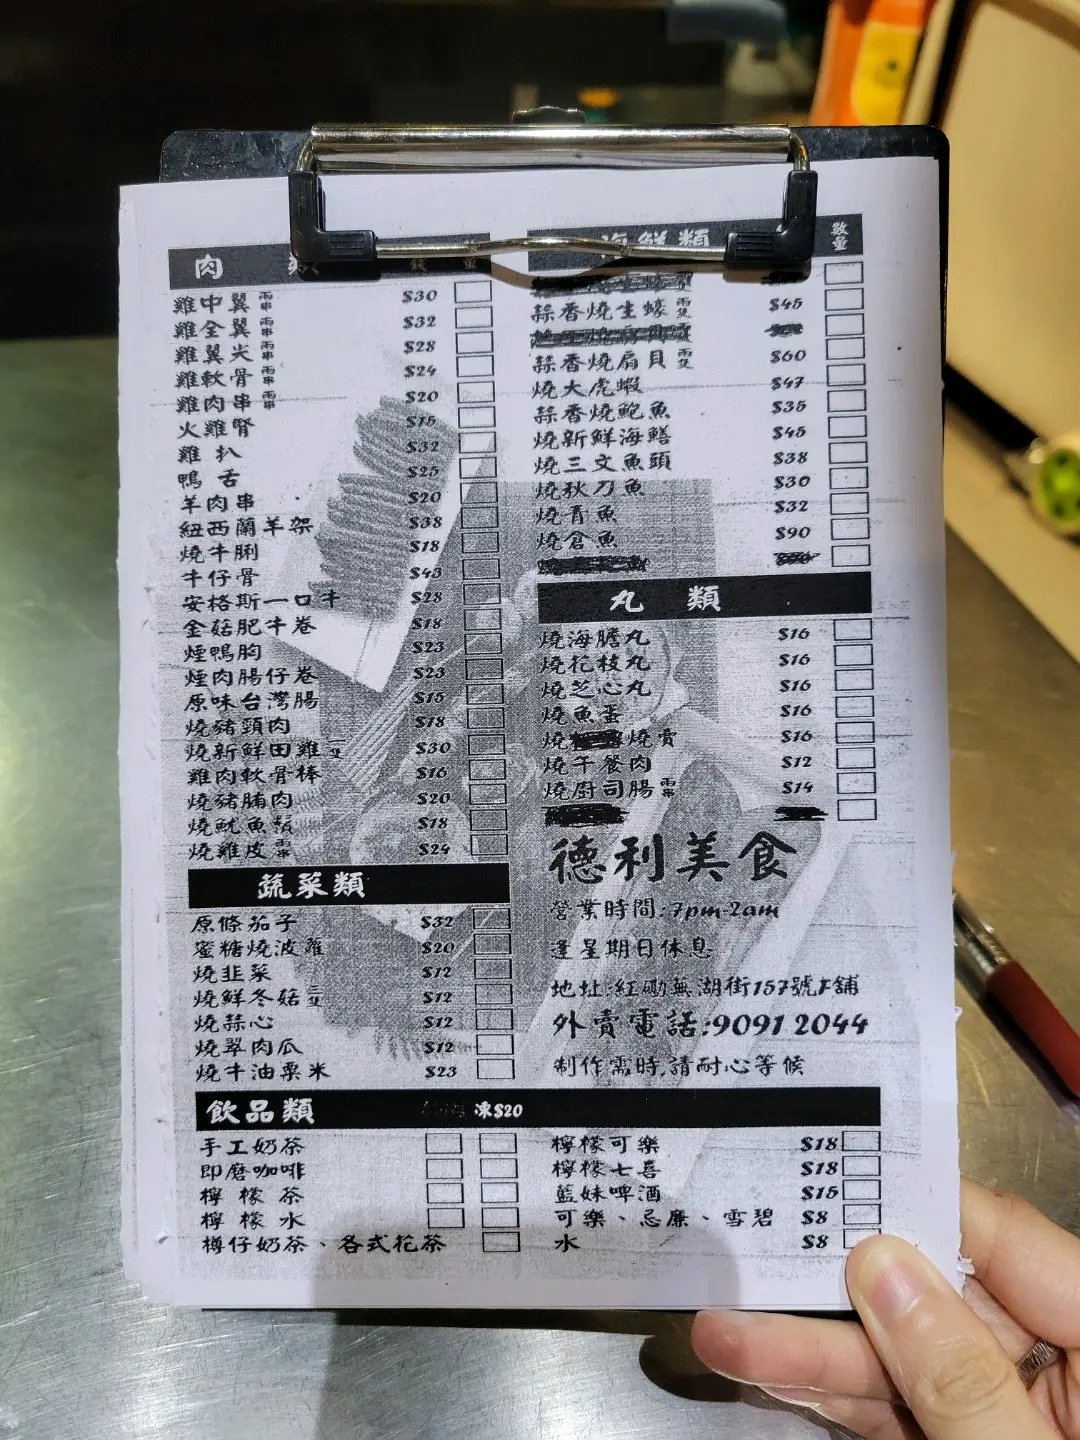 肉
雞中翼 兩串 $30
雞全翼 兩串 $32
雞翼尖 兩串 $28
雞軟骨 兩串 $24
雞肉串 兩串 $20
火雞腎 $15
雞扒 $32
鴨舌 $25
羊肉串 $20
紐西蘭羊架 $38
燒牛脷 $18
牛仔骨 $43
安格斯一口牛 $28
金菇肥牛卷 $18
煙鴨胸 $23
煙肉腸仔卷 $23
原味台灣腸 $15
燒豬頸肉 $18
燒新鮮田雞 $30
雞肉軟骨棒 $16
燒豬腩肉 $20
燒魷魚鬚 $18
燒雞皮 兩串 $24
蔬菜類
原條茄子 $32
蜜糖燒波蘿 $20
燒韭菜 $12
燒鮮冬菇 $12
燒蒜心 $12
燒翠肉瓜 $12
燒牛油粟米 $23
海鮮類 數量
蒜香燒生蠔 $45
蒜香燒扇貝 $60
燒大虎蝦 $47
蒜香燒鮑魚 $35
燒新鮮海鱔 $45
燒三文魚頭 $38
燒秋刀魚 $30
燒青魚 $32
燒倉魚 $90
丸類
燒海膽丸 $16
燒花枝丸 $16
燒芝心丸 $16
燒魚蛋 $16
燒燒賣 $16
燒午餐肉 $12
燒廚司腸 $14
德利美食
營業時間:7pm-2am
逢星期日休息
地址:紅磡蕪湖街157號F舖
外賣電話:9091 2044
制作需時,請耐心等候
飲品類 凍$20
手工奶茶
即磨咖啡
檸檬茶
檸檬水
樽仔奶茶、各式花茶
檸檬可樂 $18
檸檬七喜 $18
藍妹啤酒 $15
可樂、忌廉、雪碧 $8
水 $8